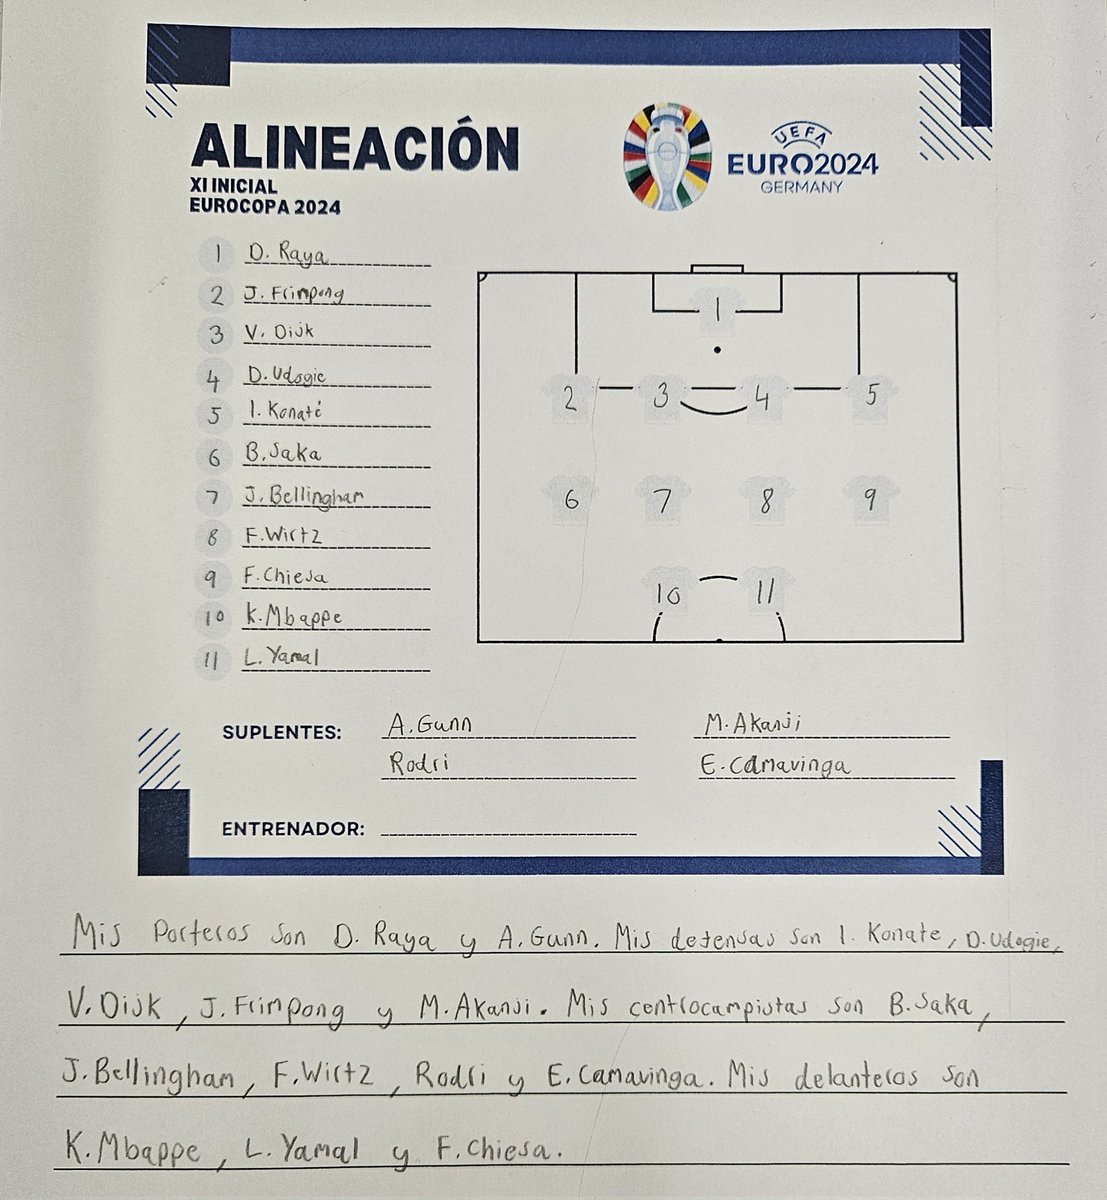 ALINEACIÓN
XI INICIAL
EUROCOPA 2024
UEFA
EURO2024
GERMANY
1 D. Raya
2 J. Frimpong
3 V. Dijk
4 D. Udogie
5 I. Konaté
6 B. Saka
7 J. Bellingham
8 F. Wirtz
9 F. Chiesa
10 K. Mbappe
11 L. Yamal
1
2 3 4 5
6 7 8 9
10 11
SUPLENTES: A. Gunn M. Akanji
Rodri E. Camavinga
ENTRENADOR:
Mis Porteros son D. Raya y A. Gunn. Mis defensas son I. Konate, D. Udogie,
V. Dijk, J. Frimpong y M. Akanji. Mis centrocampistas son B. Saka,
J. Bellingham, F. Wirtz, Rodri y E. Camavinga. Mis delanteros son
K. Mbappe, L. Yamal y F. Chiesa.